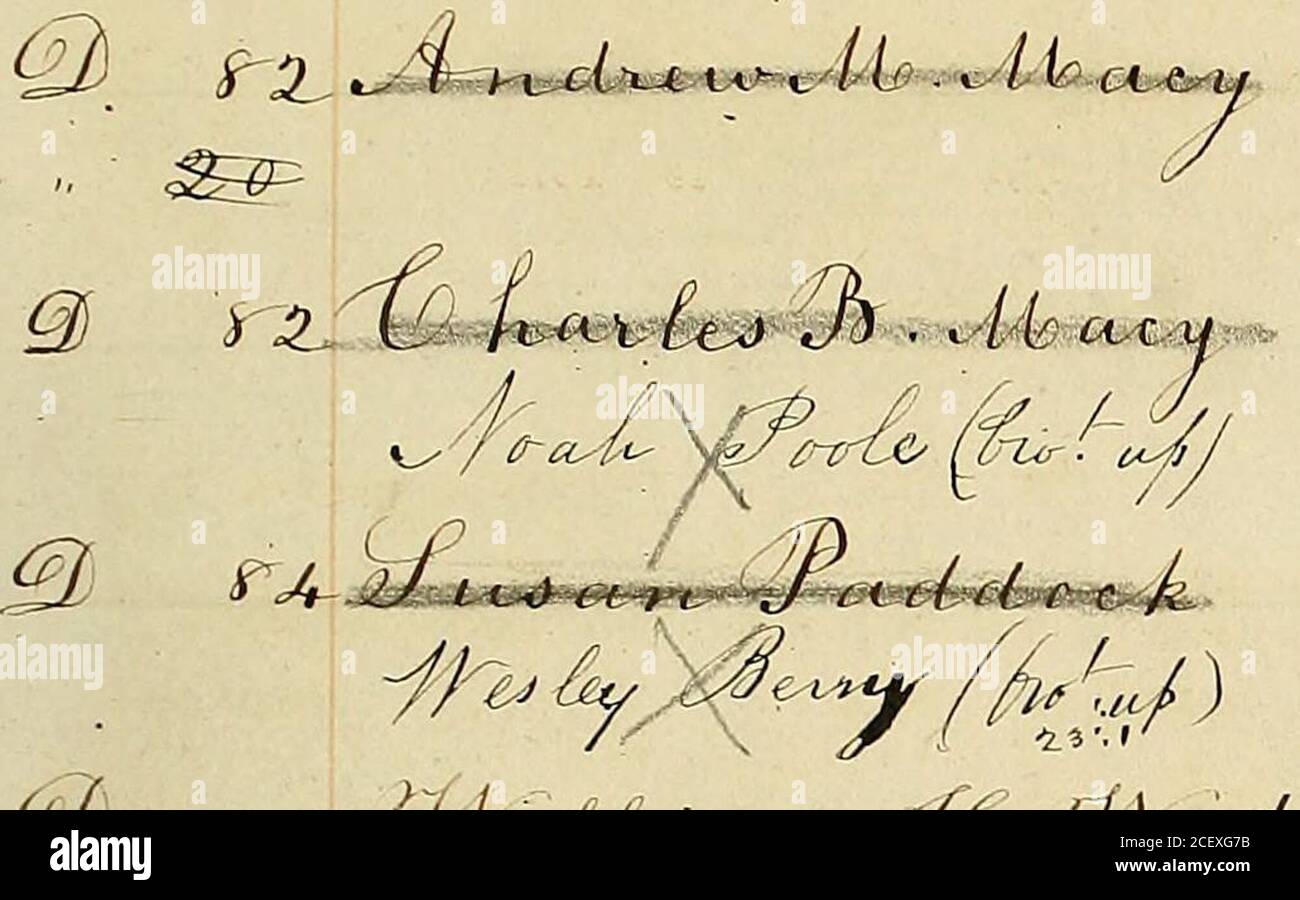 D. 82 Andrew M. Macy
" 20
D 82 Charles B. Macy
Noah Poole (bro.t up)
D 84 Susan Paddock
Wesley Berry (bro.t up)
23.1
D
alamy
Image ID: 2CEXG7B
www.alamy.com